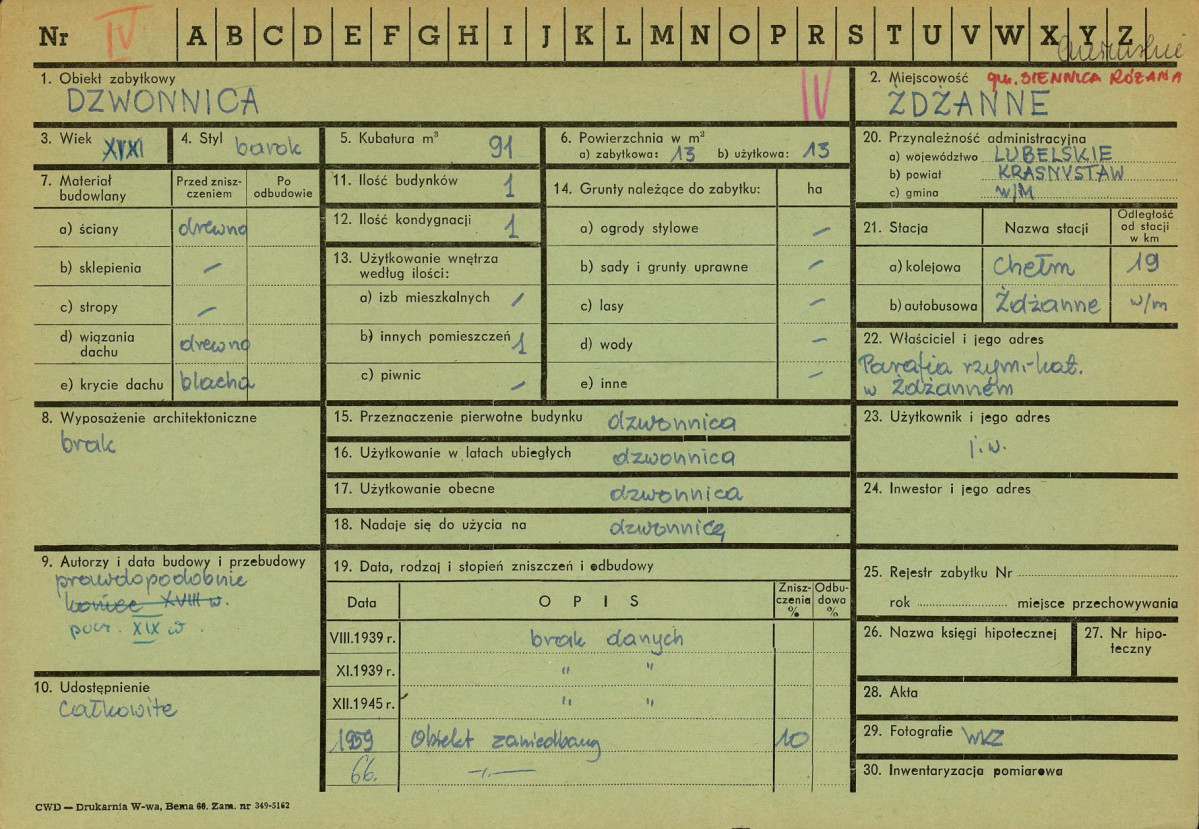 Nr IV A B C D E F G H I J K L M N O P R S T U V W X Y Z
1. Obiekt zabytkowy
DZWONNICA
IV
2. Miejscowość gm. SIENNICA RÓŻANA
ŻDŻANNE
3. Wiek
4. Styl barok
5. Kubatura m³ 91
6. Powierzchnia w m²
a) zabytkowa: 13 b) użytkowa: 13
20. Przynależność administracyjna
a) województwo LUBELSKIE
b) powiat KRASNYSTAW
c) gmina w/M
7. Materiał budowlany
Przed zniszczeniem
Po odbudowie
a) ściany drewno
b) sklepienia —
c) stropy —
d) wiązania dachu drewno
e) krycie dachu blacha
11. Ilość budynków 1
12. Ilość kondygnacji 1
13. Użytkowanie wnętrza według ilości:
a) izb mieszkalnych /
b) innych pomieszczeń 1
c) piwnic —
14. Grunty należące do zabytku: ha
a) ogrody stylowe —
b) sady i grunty uprawne —
c) lasy —
d) wody —
e) inne —
21. Stacja
Nazwa stacji
Odległość od stacji w km
a) kolejowa Chełm 19
b) autobusowa Żdżanne w/m
22. Właściciel i jego adres
Parafia rzym.-kat.
w Żdżanném
8. Wyposażenie architektoniczne
brak
15. Przeznaczenie pierwotne budynku dzwonnica
16. Użytkowanie w latach ubiegłych dzwonnica
17. Użytkowanie obecne dzwonnica
18. Nadaje się do użycia na dzwonnicę
23. Użytkownik i jego adres
j.w.
24. Inwestor i jego adres
9. Autorzy i data budowy i przebudowy
prawdopodobnie
koniec XVIII w.
pocz. XIX w.
10. Udostępnienie
całkowite
19. Data, rodzaj i stopień zniszczeń i odbudowy
Data
OPIS
Zniszczenia %
Odbudowa %
VIII.1939 r. brak danych
XI.1939 r. " "
XII.1945 r. " "
1959 Obiekt zaniedbany 10
66. —"—
25. Rejestr zabytku Nr
rok miejsce przechowywania
26. Nazwa księgi hipotecznej
27. Nr hipoteczny
28. Akta
29. Fotografie WKZ
30. Inwentaryzacja pomiarowa
CWD — Drukarnia W-wa, Bema 60. Zam. nr 349-5162